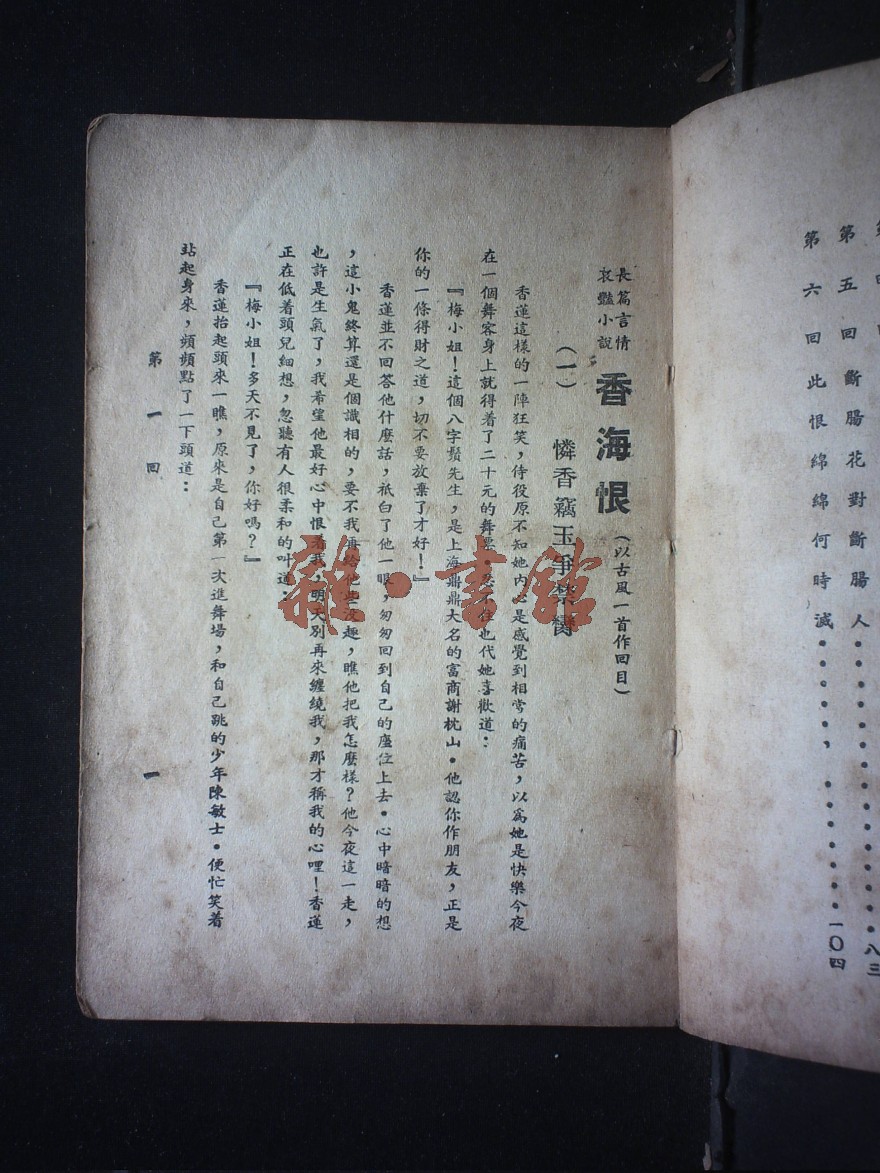 第五回斷腸花對斷腸人・・・・・・・・・・・・・・・・八三
第六回此恨綿綿何時滅・・・・・・,・・・・・・・一〇四
長篇言情
哀豔小說
香海恨
(以古風一首作回目)
(一)　憐香竊玉爭禁臠
香蓮這樣的一陣狂笑,侍役原不知她內心是感覺到相當的痛苦,以爲她是快樂今夜
在一個舞客身上就得着了二十元的舞票,忍不住也代她喜歡道:
『梅小姐!這個八字鬚先生,是上海鼎鼎大名的富商謝枕山・他認你作朋友,正是
你的一條得財之道,切不要放棄了才好!』
香蓮並不回答他什麼話,祇白了他一眼,匆匆回到自己的座位上去・心中暗暗的想
,這小鬼終算還是個識相的,要不我再給他些沒趣,瞧他把我怎麼樣?他今夜這一走,
也許是生氣了,我希望他最好心中恨着我,明天別再來纏繞我,那才稱我的心哩!香蓮
正在低着頭兒細想,忽聽有人很柔和的叫道:
『梅小姐!多天不見了,你好嗎?』
香蓮抬起頭來一瞧,原來是自己第一次進舞場,和自己跳的少年陳敏士・便忙笑着
站起身來,頻頻點了一下頭道:
第一回
一
雜・書館